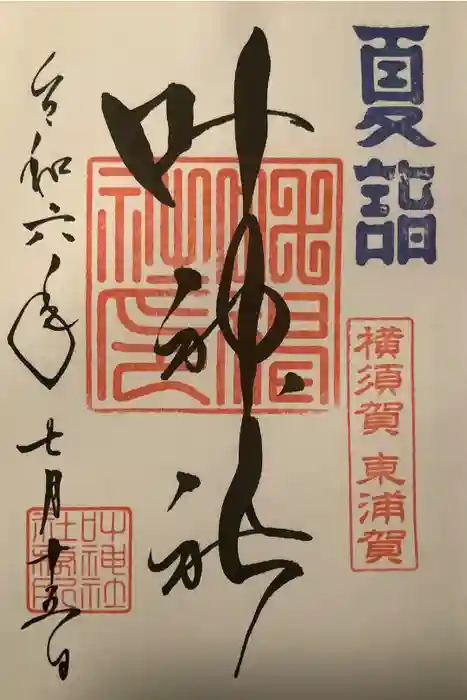 夏詣
横須賀 東浦賀
叶神社
令和六年 七月十五日
叶神社